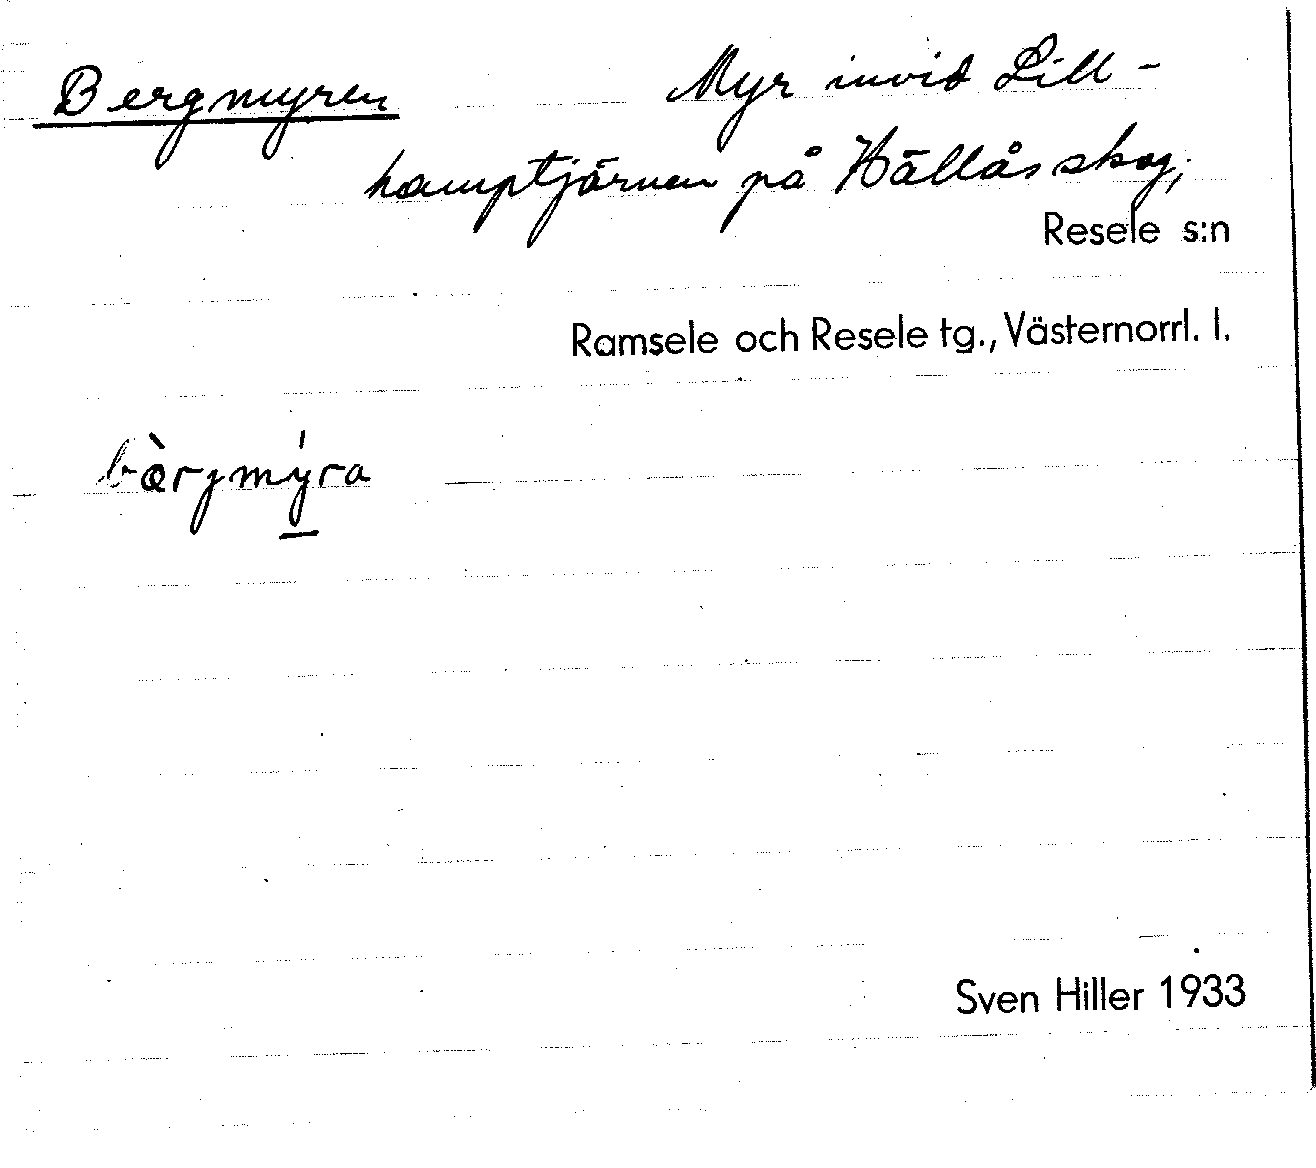 Bergmyren Myr invid Lill-
hamptjärnen på Hällås skog,
Resele s:n
Ramsele och Resele tg., Västernorrl. l.
bàrgmýra
Sven Hiller 1933